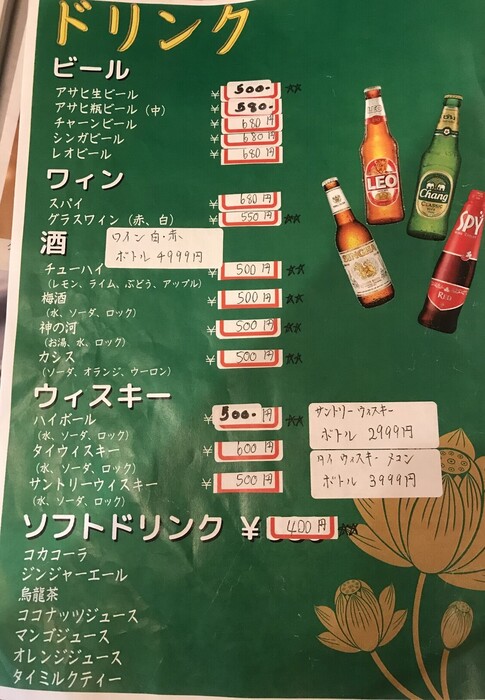 ドリンク
ビール
アサヒ生ビール ¥ 500-
アサヒ瓶ビール（中） ¥ 580-
チャーンビール ¥ 680円
シンガビール ¥ 680円
レオビール ¥ 680円
ワィン
スパイ ¥ 680円
グラスワイン（赤、白） ¥ 550円
ワイン 白・赤
ボトル 4999円
酒
チューハイ ¥ 500円
（レモン、ライム、ぶどう、アップル）
梅酒 ¥ 500円
（水、ソーダ、ロック）
神の河 ¥ 500円
（お湯、水、ロック）
カシス ¥ 500円
（ソーダ、オランジ、ウーロン）
ウィスキー
ハイボール ¥ 500-円
（水、ソーダ、ロック）
タイウィスキー ¥ 600円
（水、ソーダ、ロック）
サントリーウィスキー ¥ 500円
（水、ソーダ、ロック）
サントリーウィスキー
ボトル 2999円
タイウィスキー メコン
ボトル 3999円
ソフトドリンク ¥ 400円
コカコーラ
ジンジャーエール
烏龍茶
ココナッツジュース
マンゴジュース
オレンジジュース
タイミルクティー
LEO
Chang
CLASSIC
SPY
RED